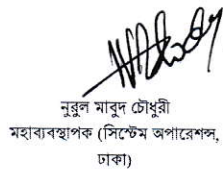 নুরুল মাবুদ চৌধুরী
মহাব্যবস্থাপক (সিস্টেম অপারেশন্স,
ঢাকা)